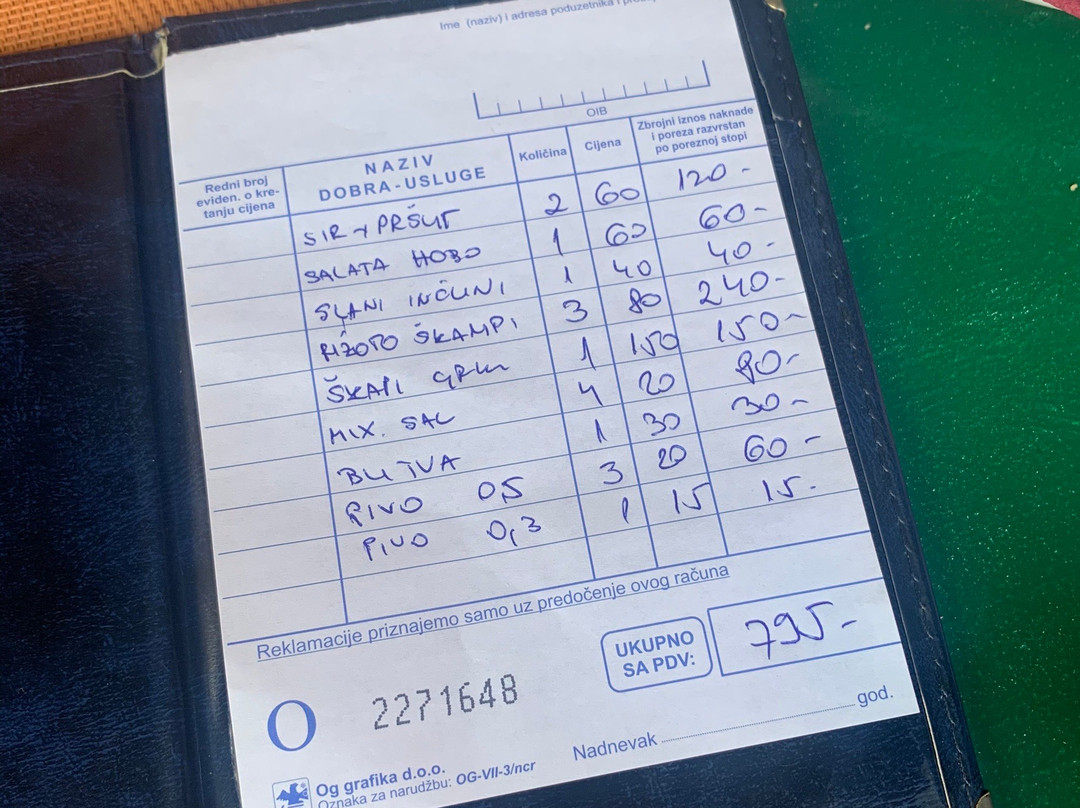 Ime (naziv) i adresa poduzetnika i
OIB
Redni broj eviden. o kre- tanju cijena NAZIV DOBRA-USLUGE Količina Cijena Zbrojni iznos naknade i poreza razvrstan po poreznoj stopi
SIR + PRŠUT 2 60 120-
SALATA HOBO 1 60 60-
SLANI INĆUNI 1 40 40-
RIŽOTO ŠKAMPI 3 80 240-
ŠKAPI 1 150 150-
MIX. SAL 4 20 80-
BLITVA 1 30 30-
PIVO 0,5 3 20 60-
PIVO 0,3 1 15 15-
Reklamacije priznajemo samo uz predočenje ovog računa
UKUPNO SA PDV: 795-
O 2271648
Nadnevak god.
Og grafika d.o.o.
Oznaka za narudžbu: OG-VII-3/ncr